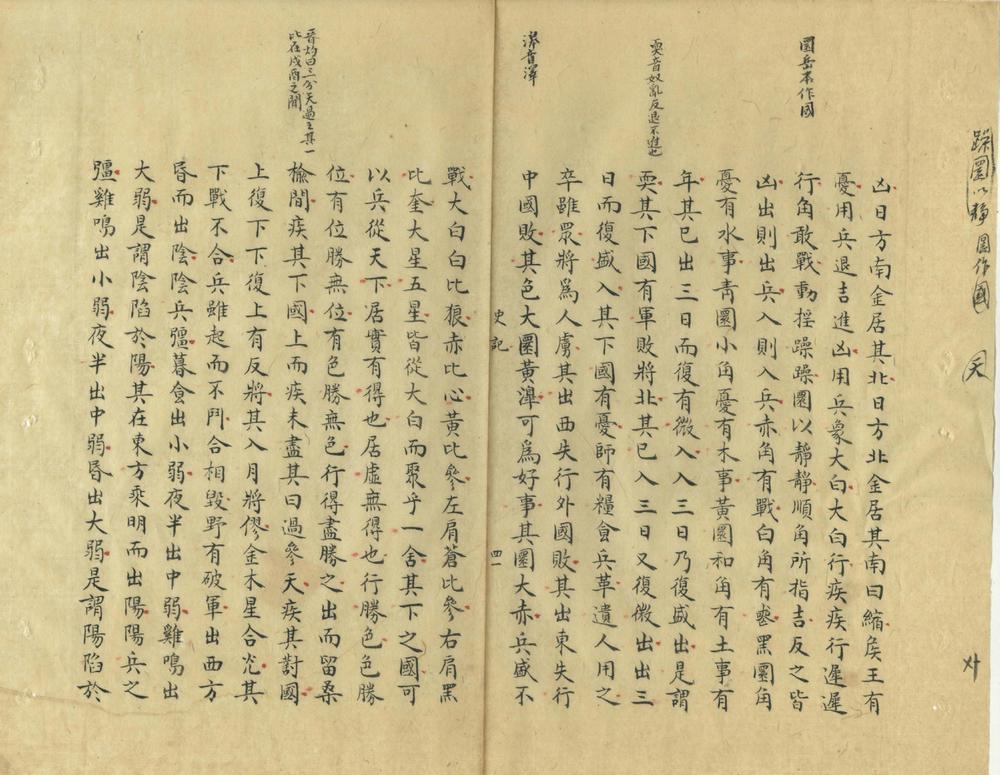 躁圜以靜圜作國
天
圜岳本作國
耎音奴亂反退不進也
澤音澤
晉灼曰三分天過其一
此在戌酉之間
凶日方南金居其北日方北金居其南曰縮侯王有
憂用兵退吉進凶用兵象大白大白行疾疾行遲遲
行角敢戰動揺躁躁圜以靜靜順角所指吉反之皆
凶出則出兵入則入兵赤角有戰白角有喪黑圜角
憂有水事青圜小角憂有木事黃圜和角有土事有
年其已出三日而復有微入入三日乃復盛出是謂
耎其下國有軍敗將北其已入三日又復微出出三
日而復盛入其下國有憂師有糧食兵革遺人用之
卒雖眾將爲人虜其出西失行外國敗其出東失行
中國敗其色大圜黃滜可爲好事其圜大赤兵盛不
史記
四一
戰大白白比狼赤比心黃比參左肩蒼比參右肩黑
比奎大星五星皆從大白而聚乎一舍其下之國可
以兵從天下居實有得也居虛無得也行勝色色勝
位有位勝無位有色勝無色行得盡勝之出而留桑
榆間疾其下國上而疾未盡其日過參天疾其對國
上復下下復上有反將其入月將僇金木星合光其
下戰不合兵雖起而不鬥合相毀野有破軍出西方
昏而出陰陰兵彊暮食出小弱夜半出中弱雞鳴出
大弱是謂陰陷於陽其在東方乘明而出陽陽兵之
彊雞鳴出小弱夜半出中弱昏出大弱是謂陽陷於